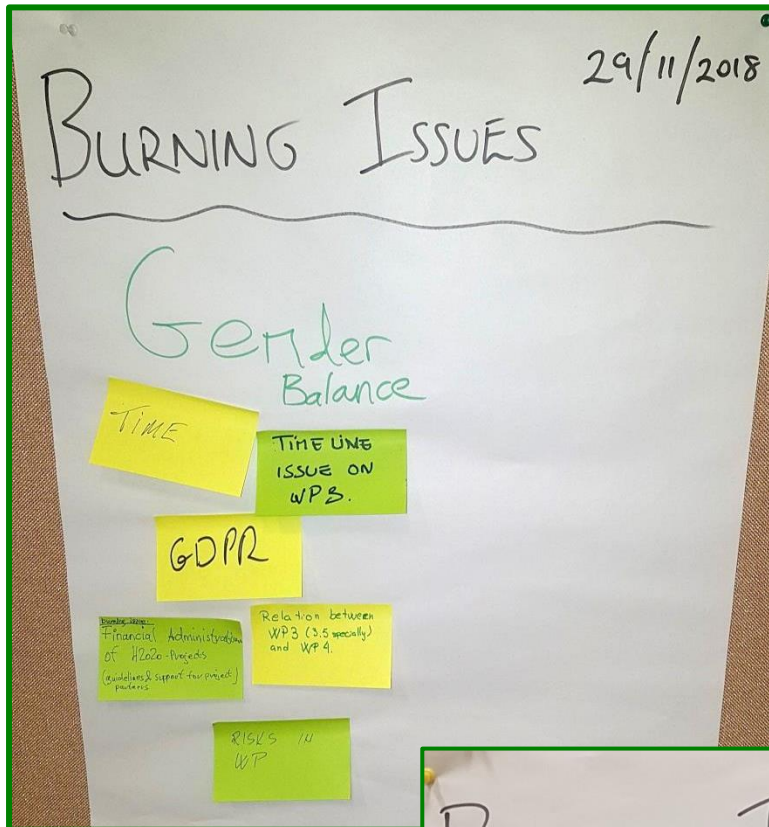 29/11/2018
BURNING ISSUES
Gender
Balance
TIME
TIME LINE
ISSUE ON
WP3.
GDPR
Burning issue:
Financial Administration
of H2020-Projects
(guidelines & support for project)
partners
Relation between
WP3 (3.5 specially)
and WP4.
RISKS IN
WP